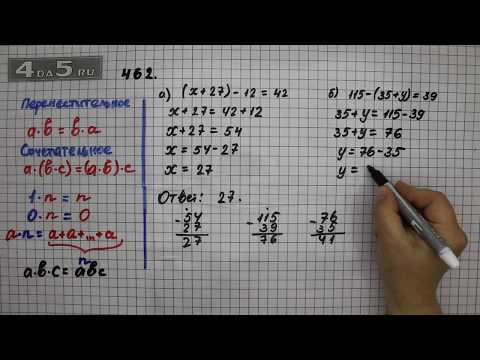 4DA5.RU
462.
Переместительное
a·b = b·a
Сочетательное
a·(b·c)=(a·b)·c
1·n = n
0·n = 0
a·n = a+a+...+a
n
a·b·c = abc
а) (x+27)-12=42
x+27=42+12
x+27=54
x=54-27
x=27
Ответ: 27.
б) 115-(35+y)=39
35+y=115-39
35+y=76
y=76-35
y=
-54
27
27
-115
39
76
-76
35
41